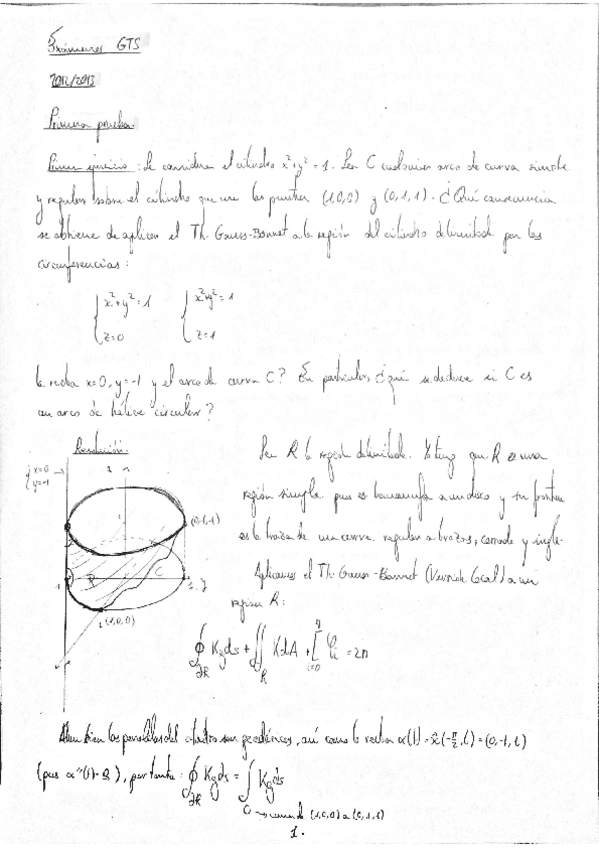 Exámenes GTS
2012/2013
Primera prueba
Primer ejercicio: Se considera el cilindro x²+y²=1. Sea C cualquier arco de curva simple
y regular sobre el cilindro que une los puntos (1,0,0) y (0,1,1). ¿Qué consecuencia
se obtiene de aplicar el Th. Gauss-Bonnet a la región del cilindro delimitada por las
circunferencias:
{ x²+y²=1 { x²+y²=1
z=0 z=1
la recta x=0, y=-1 y el arco de curva C? En particular, ¿qué se deduce si C es
un arco de hélice circular?
Resolución:
{ x=0
y=-1
1
(0,1,1)
R
C
-1
1 y
(1,0,0)
Sea R la región delimitada. Y tengo que R es una
región simple pues es homeomorfa a un disco y su frontera
es la traza de una curva regular a trozos, cerrada y simple.
Aplicamos el Th. Gauss-Bonnet (Versión Local) a mi
región R:
∮∂R Kg ds + ∬R K dA + Σ i=0 4 φi = 2π
Ahora bien los paralelos del cilindro son geodésicas, así como la recta α(t) = x(-π/2, t) = (0,-1,t)
(pues α''(t)=0), por tanto: ∮∂R Kg ds = ∫C Kg ds
C → uniendo (1,0,0) a (0,1,1)
1.